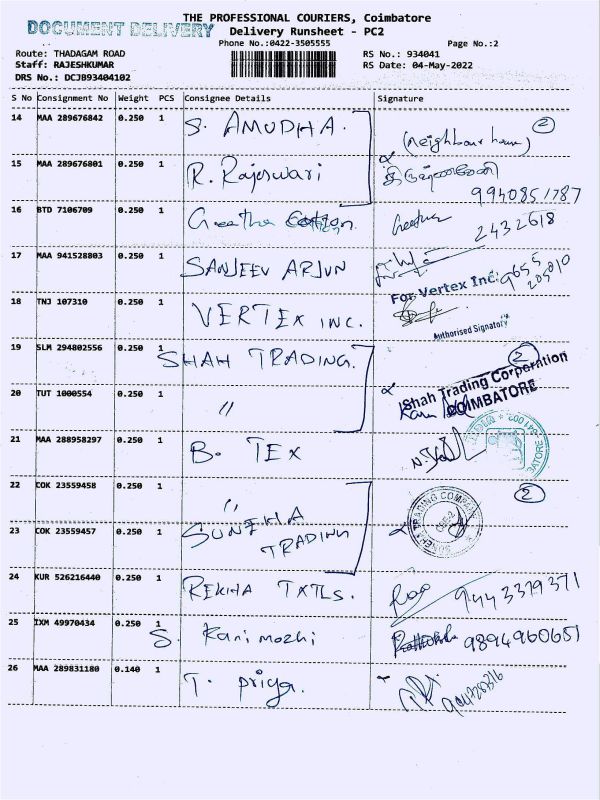 THE PROFESSIONAL COURIERS, Coimbatore
DOCUMENT DELIVERY
Delivery Runsheet - PC2
Phone No.:0422-3505555
Page No.:2
Route: THADAGAM ROAD
RS No.: 934041
Staff: RAJESHKUMAR
RS Date: 04-May-2022
DRS No.: DCJB93404102
S No Consignment No Weight PCS Consignee Details Signature
14 MAA 289676842 0.250 1 S. AMUDHA. (neighbour house) 2
15 MAA 289676801 0.250 1 R. Rajeswari 9940851787
16 BTD 7106709 0.250 1 Geetha Cotton Geetha 2432618
17 MAA 941528803 0.250 1 SANJEEV ARJUN 9655 205010
18 TNJ 107310 0.250 1 VERTEX INC. For Vertex Inc. Authorised Signatory
19 SLM 294802556 0.250 1 SHAH TRADING. 2
20 TUT 1000554 0.250 1 " Shah Trading Corporation COIMBATORE
21 MAA 288958297 0.250 1 B. TEX
22 COK 23559458 0.250 1 " 2
23 COK 23559457 0.250 1 SUNEHA TRADING
24 KUR 526216440 0.250 1 REKHA TXTLS. 9443379371
25 IXM 49970434 0.250 1 S. Kanimozhi 9894960651
26 MAA 289831180 0.140 1 T. priya.